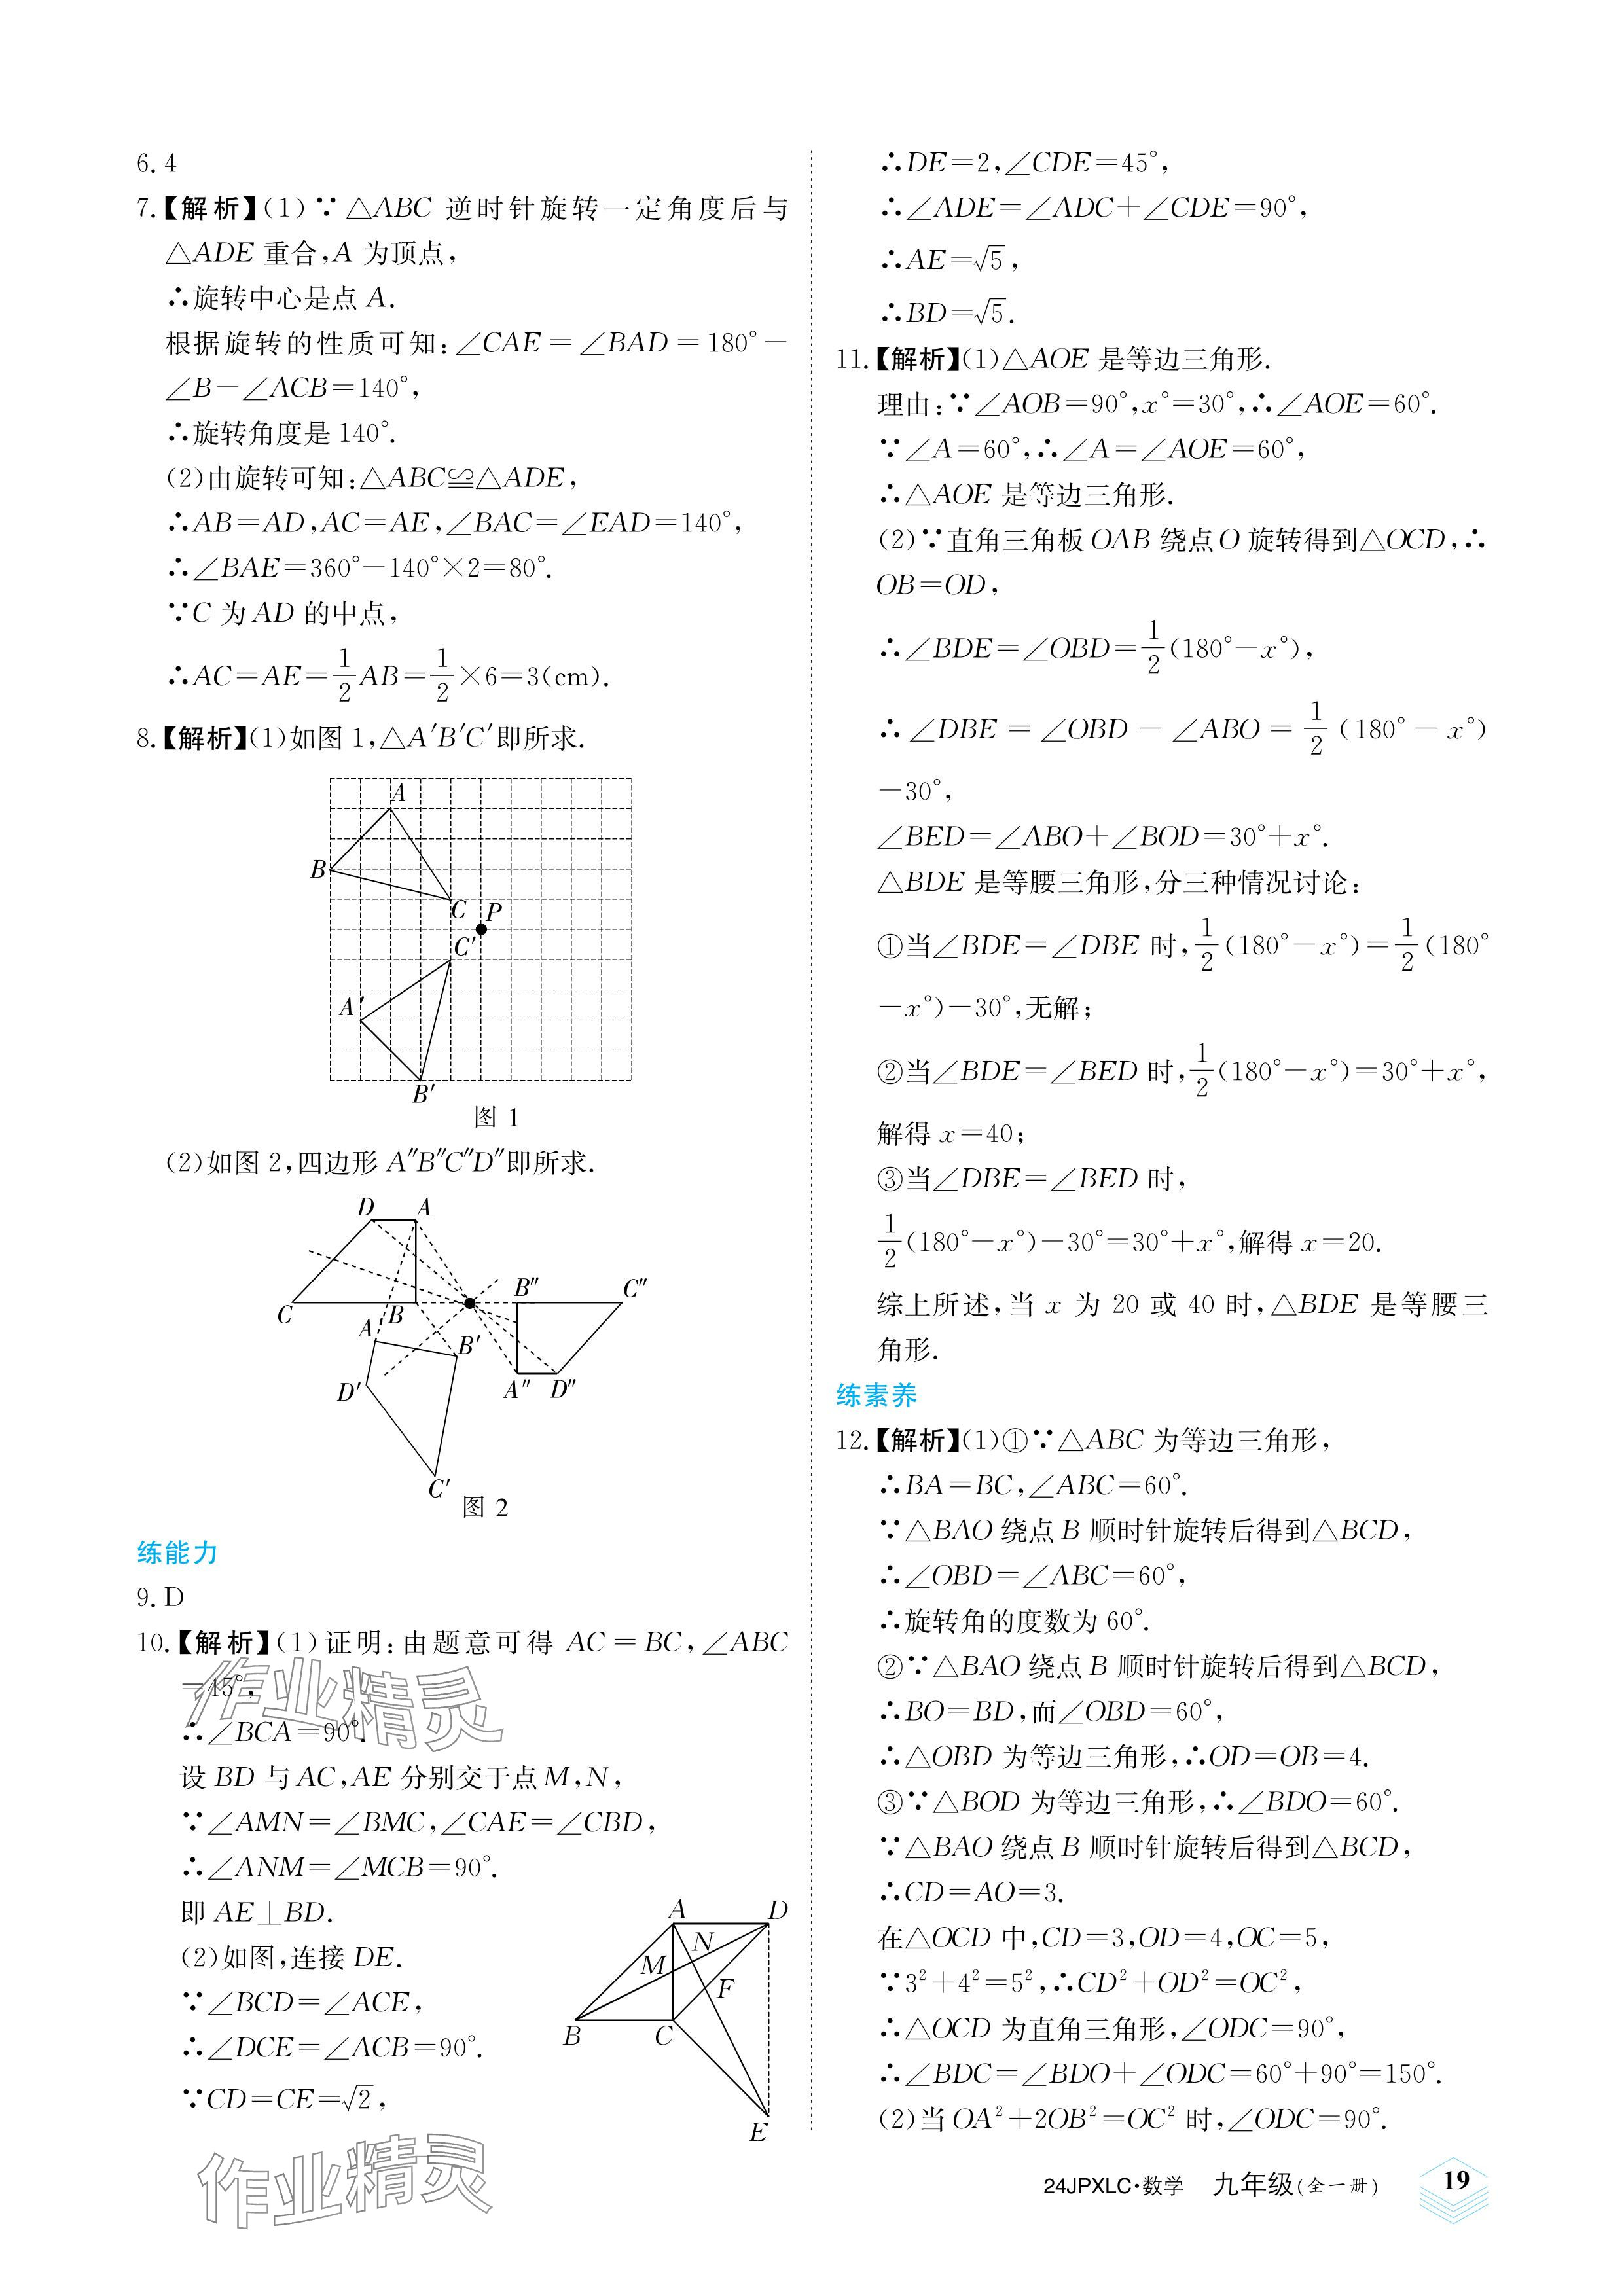 6. 4
7.【解析】(1)∵△ABC 逆时针旋转一定角度后与
△ADE 重合,A 为顶点,
∴旋转中心是点 A.
根据旋转的性质可知:∠CAE=∠BAD=180°-
∠B-∠ACB=140°,
∴旋转角度是 140°.
(2)由旋转可知:△ABC≌△ADE,
∴AB=AD,AC=AE,∠BAC=∠EAD=140°,
∴∠BAE=360°-140°×2=80°.
∵C 为 AD 的中点,
∴AC=AE=1/2 AB=1/2×6=3(cm).
8.【解析】(1)如图 1,△A′B′C′即所求.
A
B
C
P
C′
A′
B′
图 1
(2)如图 2,四边形 A″B″C″D″即所求.
D
A
B″
C″
C
B
A′
B′
D′
A″
D″
C′
图 2
练能力
9. D
10.【解析】(1)证明:由题意可得 AC=BC,∠ABC
=45°,
∴∠BCA=90°.
设 BD 与 AC,AE 分别交于点 M,N,
∵∠AMN=∠BMC,∠CAE=∠CBD,
∴∠ANM=∠MCB=90°.
即 AE⊥BD.
(2)如图,连接 DE.
∵∠BCD=∠ACE,
∴∠DCE=∠ACB=90°.
∵CD=CE=√2,
A
D
N
M
F
B
C
E
∴DE=2,∠CDE=45°,
∴∠ADE=∠ADC+∠CDE=90°,
∴AE=√5,
∴BD=√5.
11.【解析】(1)△AOE 是等边三角形.
理由:∵∠AOB=90°,x°=30°,∴∠AOE=60°.
∵∠A=60°,∴∠A=∠AOE=60°,
∴△AOE 是等边三角形.
(2)∵直角三角板 OAB 绕点 O 旋转得到△OCD,∴
OB=OD,
∴∠BDE=∠OBD=1/2(180°-x°),
∴∠DBE=∠OBD-∠ABO=1/2(180°-x°)
-30°,
∠BED=∠ABO+∠BOD=30°+x°.
△BDE 是等腰三角形,分三种情况讨论:
①当∠BDE=∠DBE 时,1/2(180°-x°)=1/2(180°
-x°)-30°,无解;
②当∠BDE=∠BED 时,1/2(180°-x°)=30°+x°,
解得 x=40;
③当∠DBE=∠BED 时,
1/2(180°-x°)-30°=30°+x°,解得 x=20.
综上所述,当 x 为 20 或 40 时,△BDE 是等腰三
角形.
练素养
12.【解析】(1)①∵△ABC 为等边三角形,
∴BA=BC,∠ABC=60°.
∵△BAO 绕点 B 顺时针旋转后得到△BCD,
∴∠OBD=∠ABC=60°,
∴旋转角的度数为 60°.
②∵△BAO 绕点 B 顺时针旋转后得到△BCD,
∴BO=BD,而∠OBD=60°,
∴△OBD 为等边三角形,∴OD=OB=4.
③∵△BOD 为等边三角形,∴∠BDO=60°.
∵△BAO 绕点 B 顺时针旋转后得到△BCD,
∴CD=AO=3.
在△OCD 中,CD=3,OD=4,OC=5,
∵3²+4²=5²,∴CD²+OD²=OC²,
∴△OCD 为直角三角形,∠ODC=90°,
∴∠BDC=∠BDO+∠ODC=60°+90°=150°.
(2)当 OA²+2OB²=OC² 时,∠ODC=90°.
作业精灵
作业精灵
24JPXLC·数学 九年级(全一册) 19